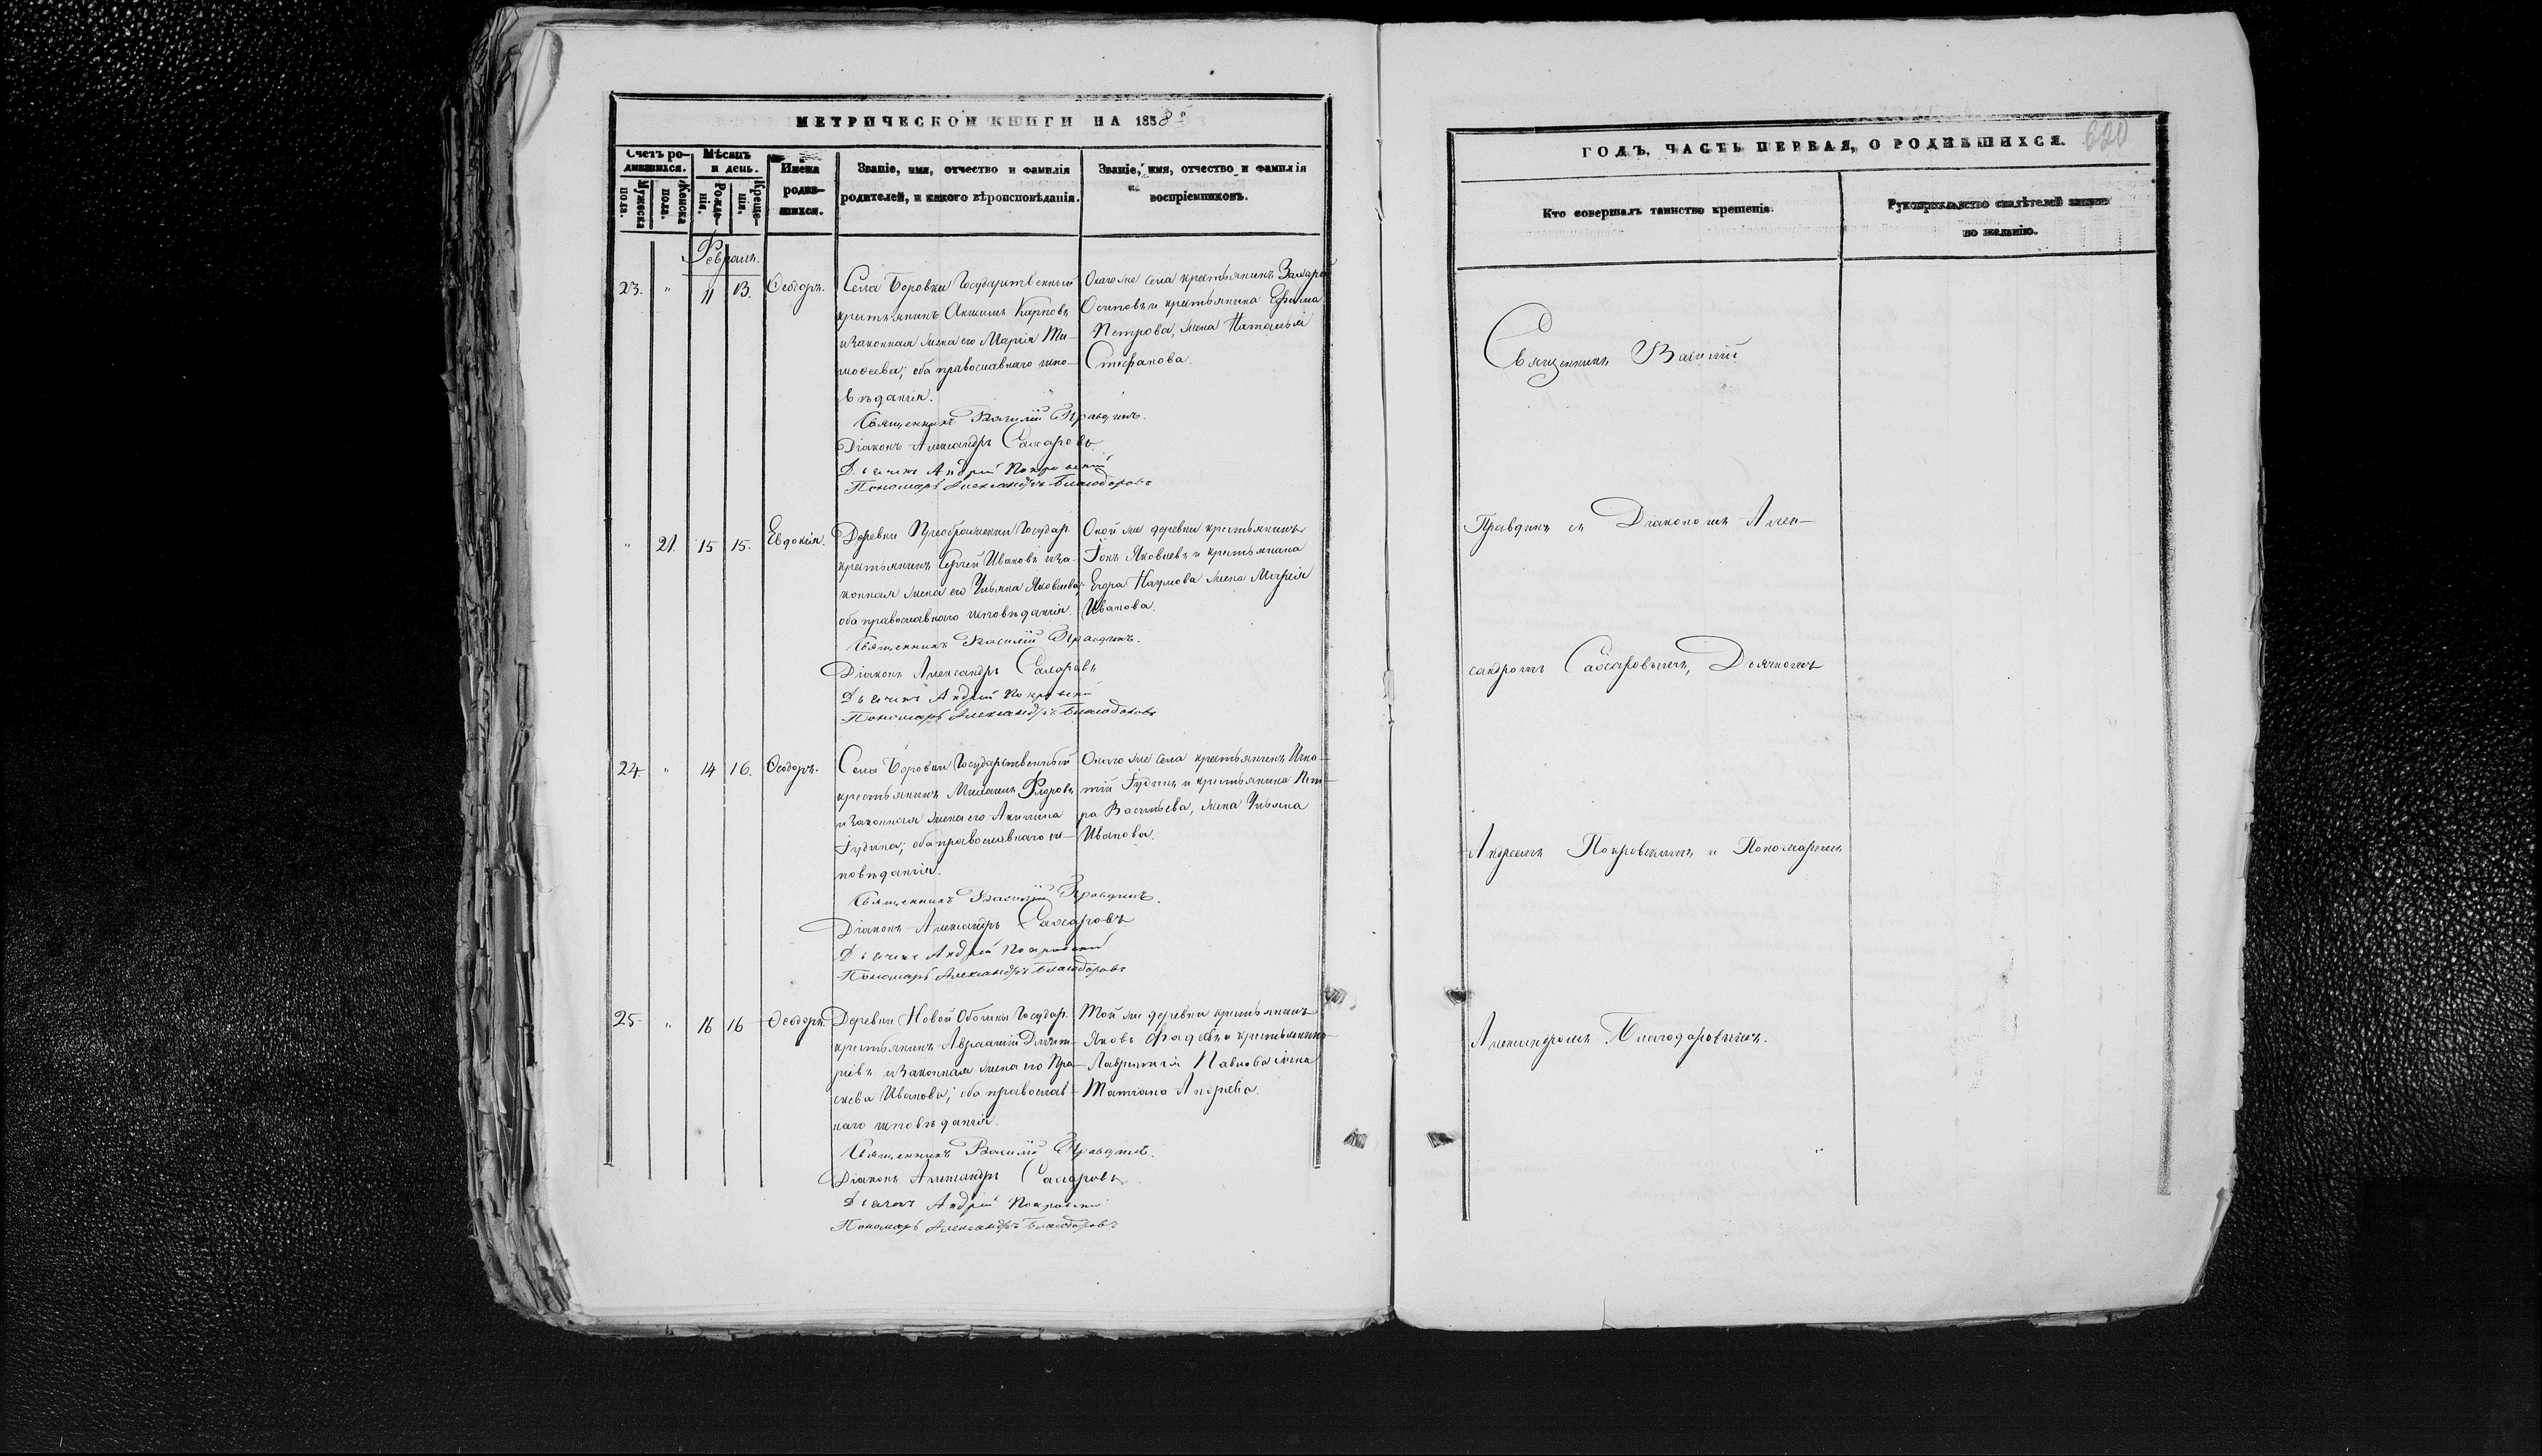 МЕТРИЧЕСКОЙ КНИГИ НА 1858й
Счетъ ро-
дившихся.
Мужеска
пола.
Женска
пола.
Мѣсяцъ
и день.
Рожде-
нія.
Креще-
нія.
Имена
роди-
вшихся.
Званіе, имя, отчество и фамилія
родителей, и какого вѣроисповѣданія.
Званіе, имя, отчество и фамилія
воспріемниковъ.
Февраль.
23. " 11 13. Ѳеодоръ.
Села Боровки Государственный
крестьянинъ Акимъ Карповъ
и законная жена его Марія Ти-
моѳеева; оба православнаго испо-
вѣданія.
Онаго же села крестьянинъ Захаръ
Осиповъ и крестьянина Ефима
Петрова, жена Наталья
Стефанова.
Священникъ Василій Правдинъ.
Діаконъ Александръ Сахаровъ
Дьячекъ Андрей Покровскій
Пономарь Александръ Благодаровъ
" 21. 15 15. Евдокія.
Деревни Преображенки Государ.
крестьянинъ Сергей Ивановъ и за-
конная жена его Ульяна Яковлева;
оба православнаго исповѣданія.
Оной же деревни крестьянинъ
Іонъ Яковлевъ и крестьянина
Егора Наумова жена Марія
Иванова.
Священникъ Василій Правдинъ.
Діаконъ Александръ Сахаровъ
Дьячекъ Андрей Покровскій
Пономарь Александръ Благодаровъ
24 " 14 16. Ѳеодоръ.
Села Боровки Государственный
крестьянинъ Михаилъ Флоровъ
и законная жена его Акилина
Іудина; оба православнаго ис-
повѣданія.
Онаго же села крестьянинъ Игна-
тій Іудинъ и крестьянина Пет-
ра Васильева, жена Ульяна
Иванова.
Священникъ Василій Правдинъ.
Діаконъ Александръ Сахаровъ
Дьячекъ Андрей Покровскій
Пономарь Александръ Благодаровъ
25. " 16 16 Ѳеодоръ.
Деревни Новой Государ.
крестьянинъ Авраамій Дмит-
ріевъ и законная жена его Пра-
сковья Иванова; оба православ-
наго исповѣданія.
Той же деревни крестьянинъ
Яковъ и крестьянина
Лаврентія Павлова жена
Татіана Андреева.
Священникъ Василій Правдинъ.
Діаконъ Александръ Сахаровъ
Дьячекъ Андрей Покровскій
Пономарь Александръ Благодаровъ
ГОДЪ, ЧАСТЬ ПЕРВАЯ, О РОДИВШИХСЯ.
620
Кто совершалъ таинство крещенія.
Рукоприкладство свидѣтелей записи
по желанію.
Священникъ Василій
Правдинъ съ Діакономъ Алек-
сандромъ Сахаровымъ, Дьячкомъ
Андреемъ Покровскимъ и Пономаремъ
Александромъ Благодаровымъ.